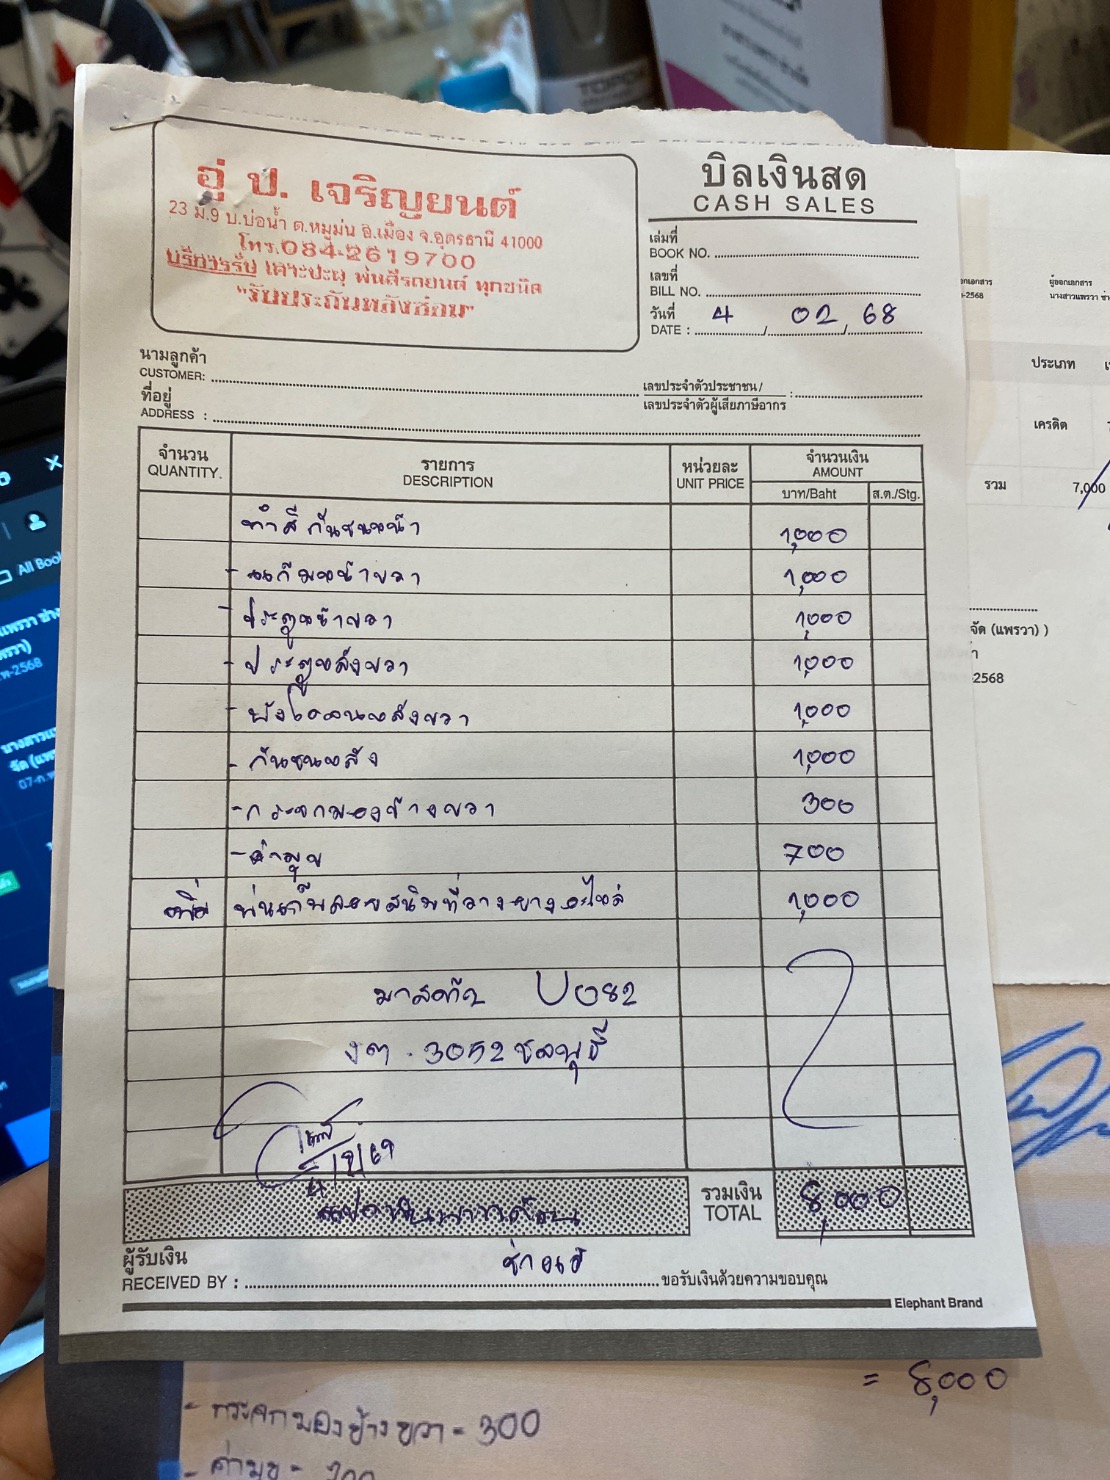 อู่ ป. เจริญยนต์
23 ม.9 บ.บ่อน้ำ ต.หมูม่น อ.เมือง จ.อุดรธานี 41000
โทร.084-2619700
บริการรับ เคาะปะผุ พ่นสีรถยนต์ ทุกชนิด
"รับประกันหลังซ่อม"
บิลเงินสด
CASH SALES
เล่มที่
BOOK NO.
เลขที่
BILL NO.
วันที่
DATE : 4 / 02 / 68
นามลูกค้า
CUSTOMER:
ที่อยู่
ADDRESS :
เลขประจำตัวประชาชน/
เลขประจำตัวผู้เสียภาษีอากร :
จำนวน
QUANTITY.
รายการ
DESCRIPTION
หน่วยละ
UNIT PRICE
จำนวนเงิน
AMOUNT
บาท/Baht ส.ต./Stg.
ทำสีกันชนหน้า 1,000
- แก้มหน้าขวา 1,000
- ประตูหน้าขวา 1,000
- ประตูหลังขวา 1,000
- บังโคลนหลังขวา 1,000
- กันชนหลัง 1,000
- กระจกมองข้างขวา 300
- ค่ามุข 700
พ่นเก็บสนิมที่วางยางอะไหล่ 1,000
มาสด้า
งต. 3052 ชลบุรี
รวมเงิน
TOTAL 8,000
ผู้รับเงิน
RECEIVED BY : ขอรับเงินด้วยความขอบคุณ
Elephant Brand
= 8,000
- กระจกมองข้างขวา = 300
- ค่ามุข = 700
ผู้ออกเอกสาร
ประเภท
เครดิต
รวม 7,000
จัด (แพรวา) )
2568
All Book